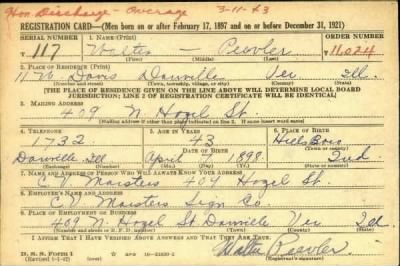 Hon Discharge - Overage 3-11-43
REGISTRATION CARD—(Men born on or after February 17, 1897 and on or before December 31, 1921)
SERIAL NUMBER 1. NAME (Print) ORDER NUMBER
T 117 Walter — Peevler 11024
(First) (Middle) (Last)
2. PLACE OF RESIDENCE (Print)
11 N Davis Danville Ver Ill.
(Number and street) (Town, township, village, or city) (County) (State)
[THE PLACE OF RESIDENCE GIVEN ON THE LINE ABOVE WILL DETERMINE LOCAL BOARD
JURISDICTION; LINE 2 OF REGISTRATION CERTIFICATE WILL BE IDENTICAL]
3. MAILING ADDRESS
409 N. Hazel St.
[Mailing address if other than place indicated on line 2. If same insert word same]
4. TELEPHONE 5. AGE IN YEARS 6. PLACE OF BIRTH
1732 43 Hillsboro
DATE OF BIRTH
Danville Ill April 1898 Ind.
(Exchange) (Number) (Mo.) (Day) (Yr.) (State or country)
7. NAME AND ADDRESS OF PERSON WHO WILL ALWAYS KNOW YOUR ADDRESS
C. V. Maisters 409 Hazel St.
8. EMPLOYER'S NAME AND ADDRESS
C. V. Maisters Sign Co.
9. PLACE OF EMPLOYMENT OR BUSINESS
409 N. Hazel St. Danville Ver Ill
(Number and street or R. F. D. number) (Town) (County) (State)
I AFFIRM THAT I HAVE VERIFIED ABOVE ANSWERS AND THAT THEY ARE TRUE.
D. S. S. FORM 1 Walter Peevler
(Revised 1-1-42) (Registrant's signature)